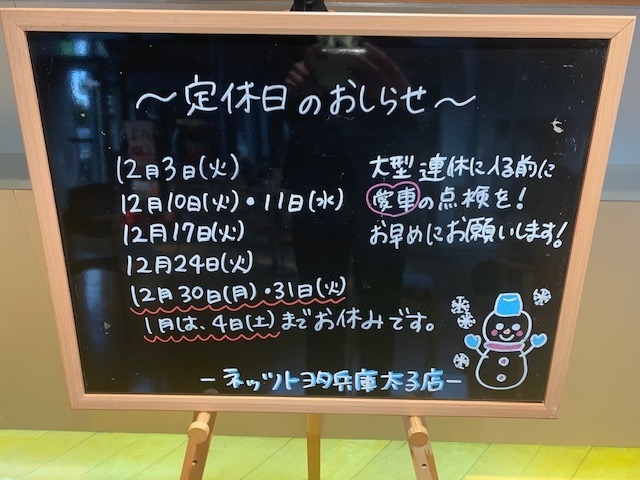 ～定休日のおしらせ～
12月3日(火)
12月10日(火)・11日(水)
12月17日(火)
12月24日(火)
12月30日(月)・31日(火)
1月は、4日(土)までお休みです。
大型連休に入る前に
愛車の点検を!
お早めにお願いします!
－ネッツトヨタ兵庫太子店－